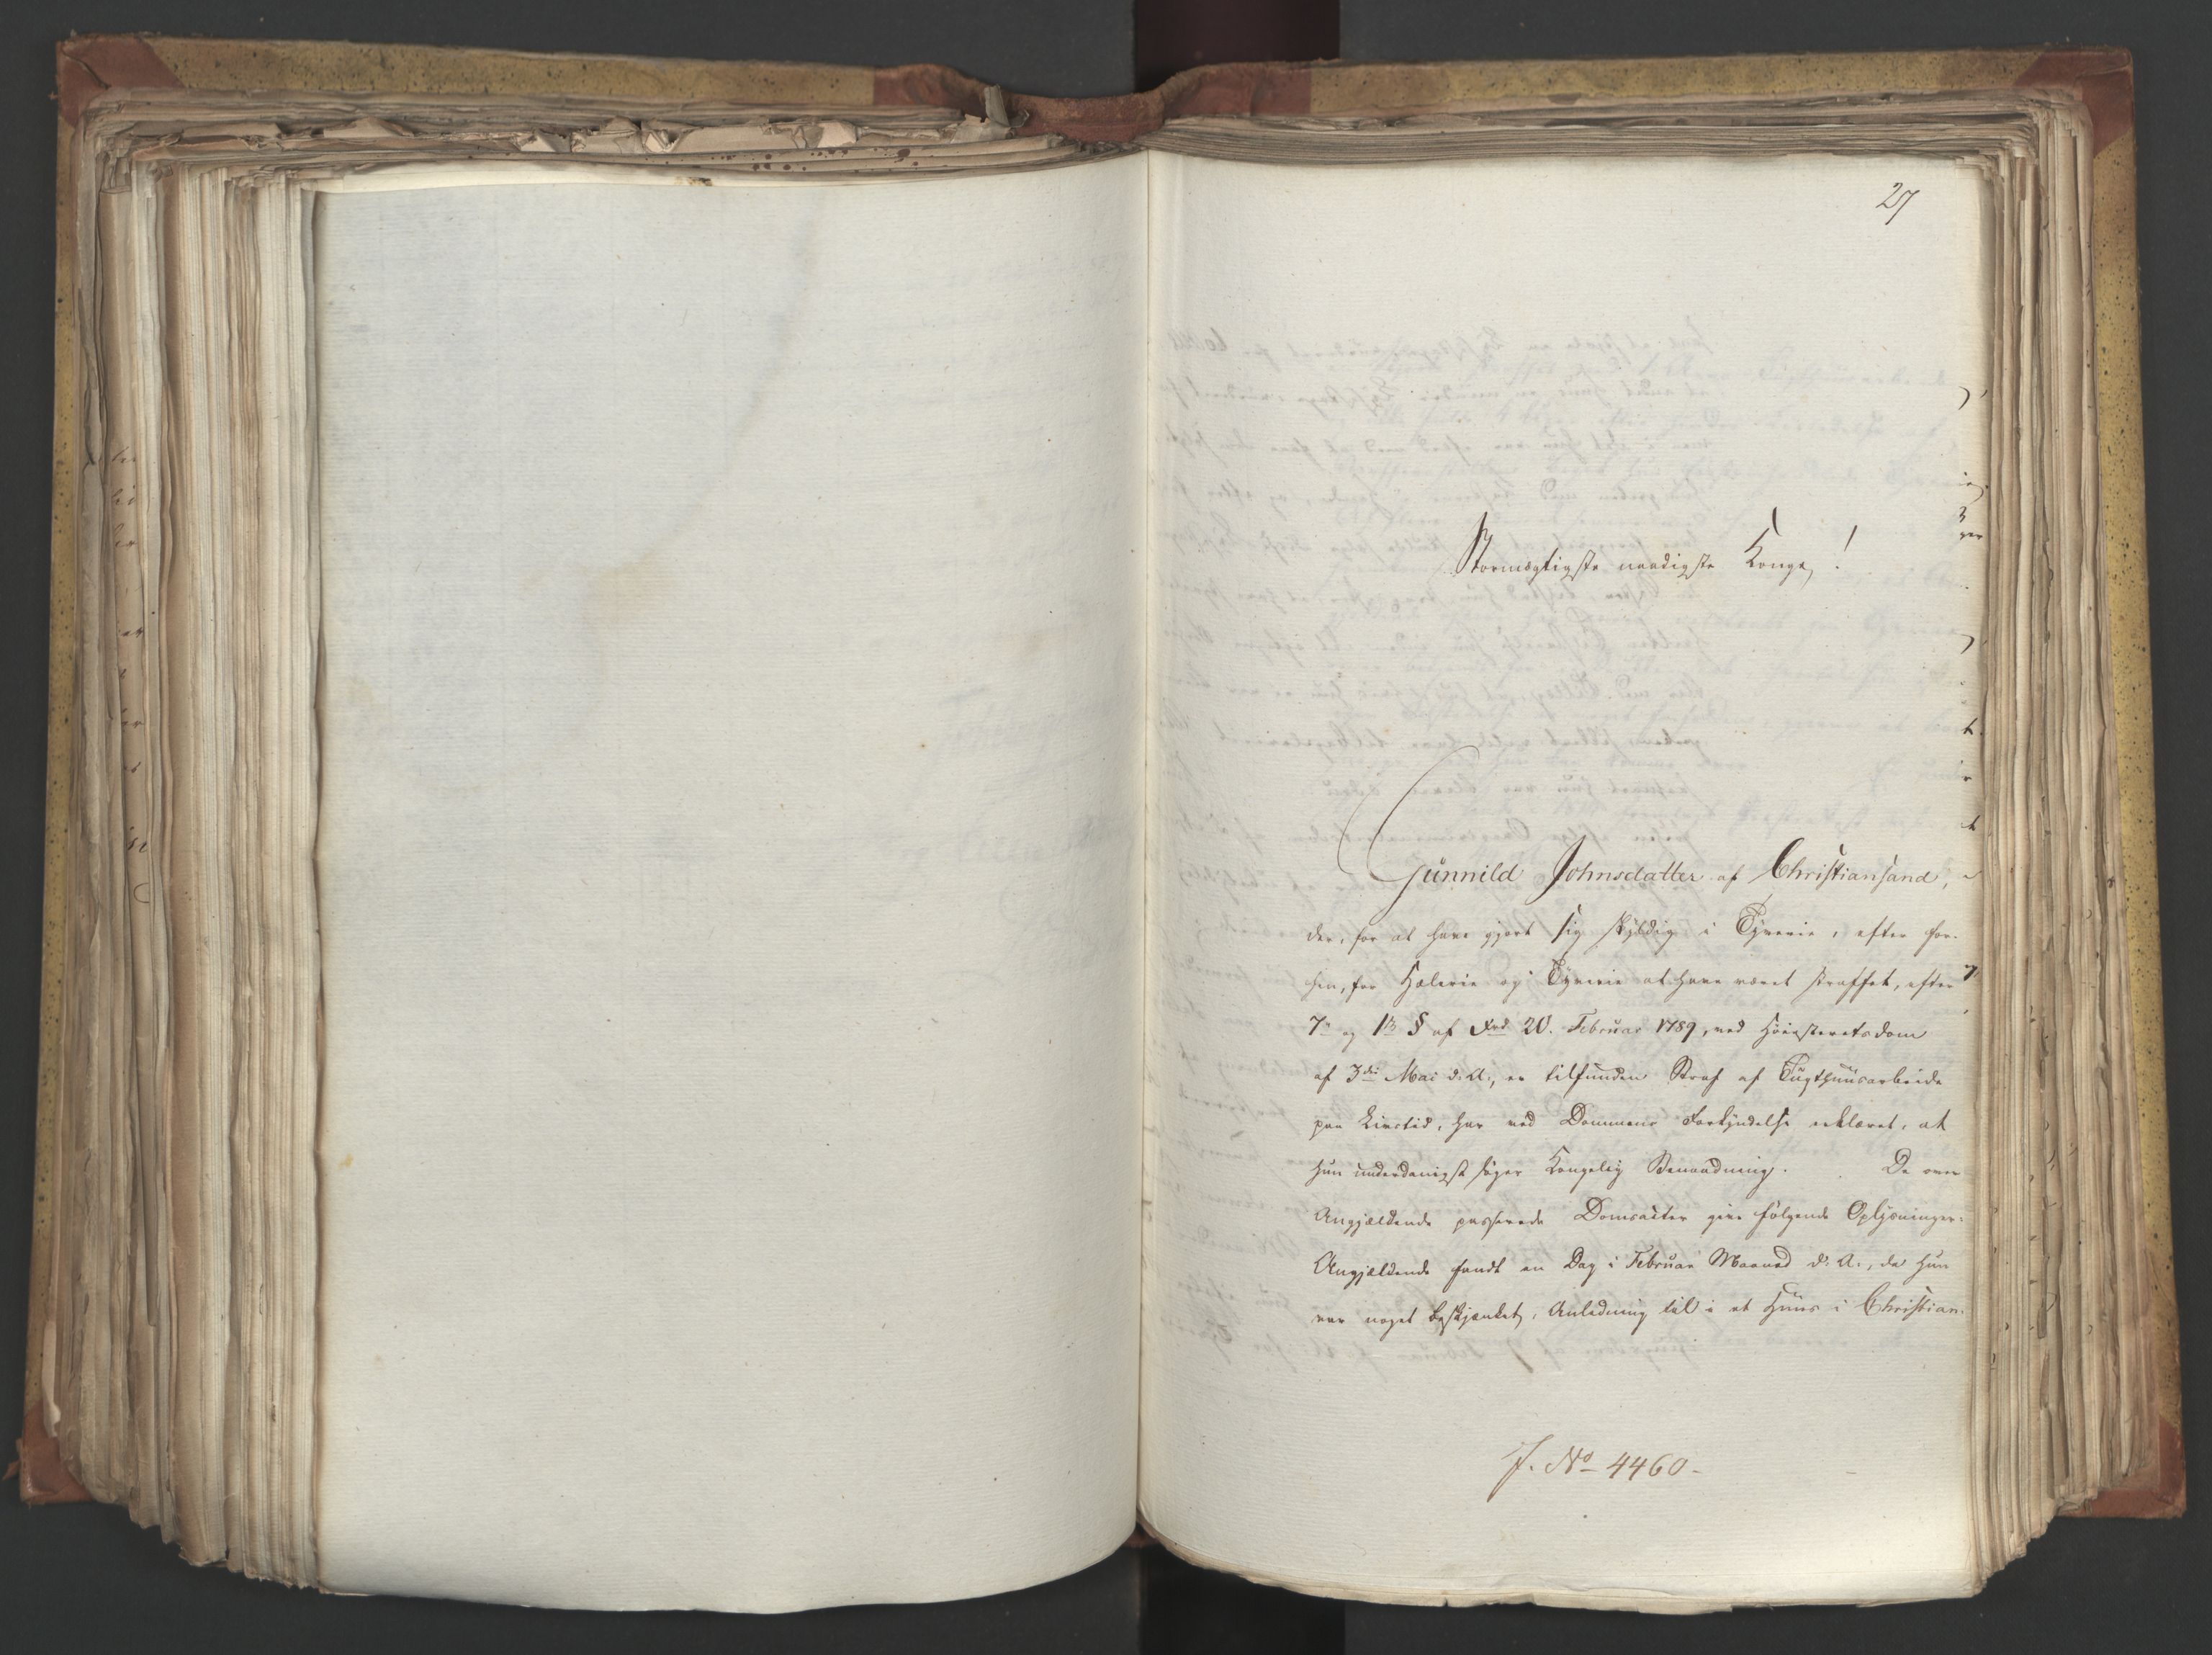 27
Stormægtigste naadigste Konge!
Gunnild Johnsdatter af Christiansand,
der, for at have gjort sig skyldig i Tyverie, efter for-
hen, for Hælerie og Tyverie at have været straffet, efter
7de og 1ste § af Frd 20. Februar 1789, ved Höiesteretsdom
af 3die Mai d. A., er tilfunden Straf af Tugthuusarbeide
paa Livstid, har ved Dommens Forkyndelse erklæret, at
hun underdanigst søger Kongelig Benaadning. De over
Angjældende passerede Domsacter give følgende Oplysninger:
Angjældende fandt en Dag i Februar Maaned d. A., da hun
var noget beskjænket, Anledning til i et Huus i Christian-
J. No 4460-